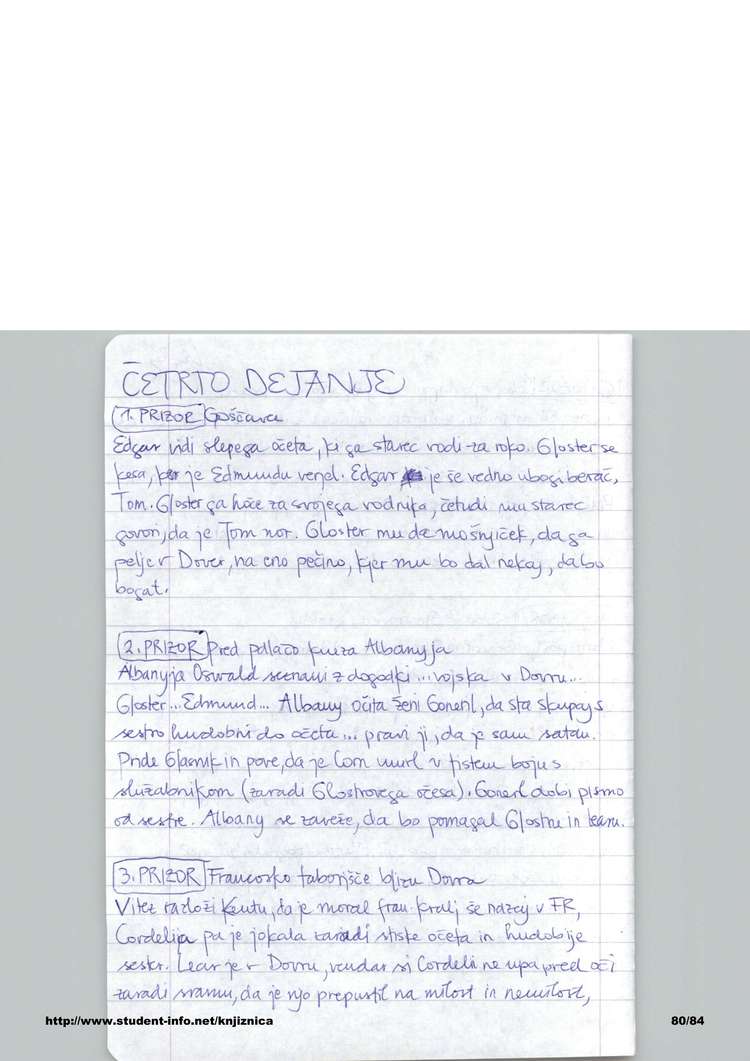 ČETRTO DEJANJE
1. PRIZOR Goščava
Edgar vidi slepega očeta, ki ga starec vodi za roko. Gloster se
kesa, ker je Edmundu verjel. Edgar je še vedno ubogi berač,
Tom. Gloster ga hoče za svojega vodnika, četudi mu starec
govori, da je Tom nor. Gloster mu da mošnjiček, da ga
pelje v Dover, na eno pečino, kjer mu bo dal nekaj, da bo
bogat.
2. PRIZOR Pred palačo kneza Albanyja
Albanyja Oswald seznani z dogodki ... vojska v Dovru...
Gloster... Edmund... Albany očita ženi Goneril, da sta skupaj s
sestro hudobni do očeta ... pravi ji, da je sam satan.
Pride Glasnik in pove, da je Corn umrl v tistem boju s
služabnikom (zaradi Glostrovega očesa). Goneril dobi pismo
od sestre. Albany se zaveže, da bo pomagal Glostru in Learu.
3. PRIZOR Francosko taborišče blizu Dovra
Vitez razloži Kentu, da je moral fran. kralj še nazaj v FR,
Cordelija pa je jokala zaradi stiske očeta in hudobije
sester. Lear je v Dovru, vendar si Cordeli ne upa pred oči
zaradi sramu, da je njo prepustil na milost in nemilost,
http://www.student-info.net/knjiznica
80/84